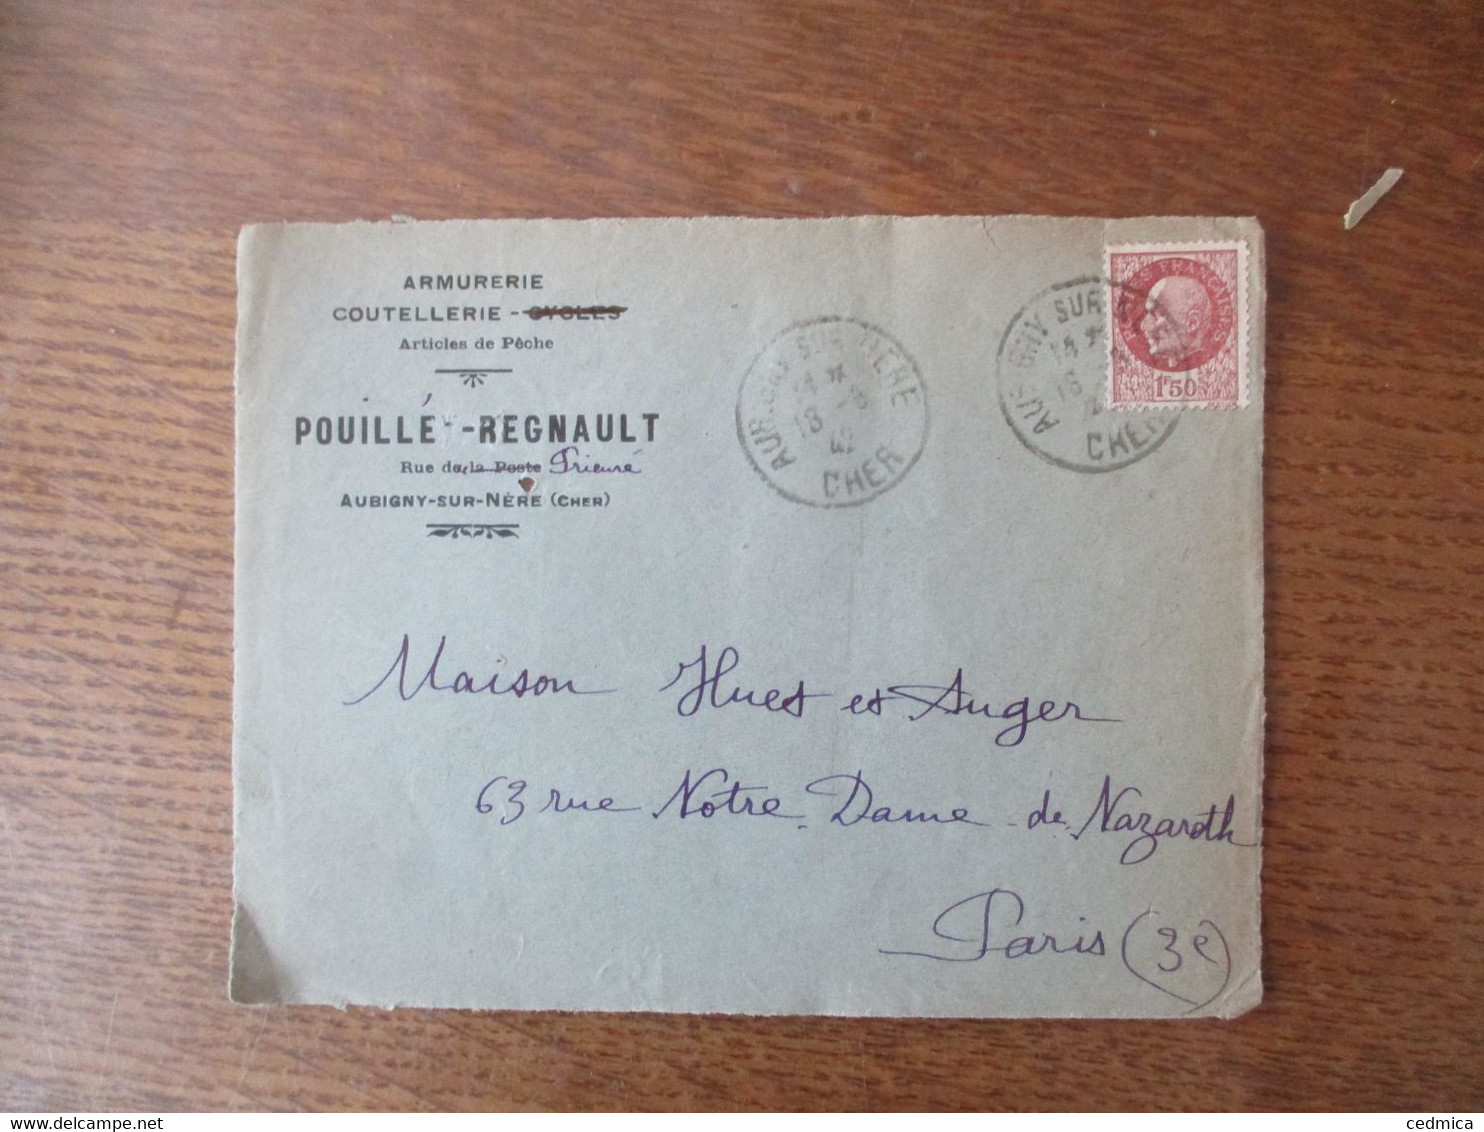 ARMURERIE
COUTELLERIE - CYCLES
Articles de Pêche
POUILLÉ -REGNAULT
Rue de la Poste Prieuré
AUBIGNY-SUR-NÈRE (CHER)
AUBIGNY SUR NERE
14 * 8
18
42
CHER
AUBIGNY SUR NERE
14 *
18
CHER
POSTES FRANÇAISES
1F50
Maison Huet et Auger
63 rue Notre-Dame-de Nazareth
Paris (3e)
cedmica